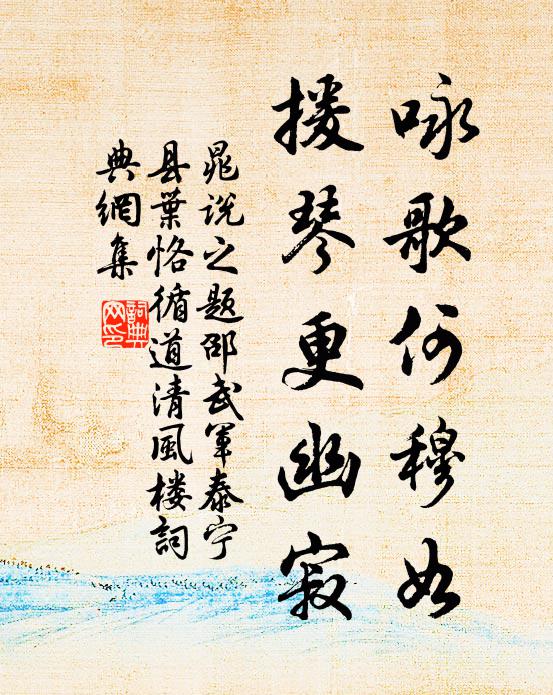 咏歌何穆如
援琴更幽寂
晁说之题邵武军泰宁
县葉恪循道清風楼詞
典網集
詞典网印